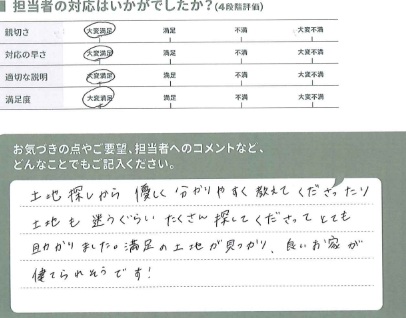 担当者の対応はいかがでしたか?(4段階評価)
親切さ 大変満足 満足 不満 大変不満
対応の早さ 大変満足 満足 不満 大変不満
適切な説明 大変満足 満足 不満 大変不満
満足度 大変満足 満足 不満 大変不満
お気づきの点やご要望、担当者へのコメントなど、
どんなことでもご記入ください。
土地探しから 優しく分かりやすく教えてくださったり
土地も迷うぐらいたくさん探してくださってとても
助かりました。満足の土地が見つかり、良いお家が
建てられそうです!